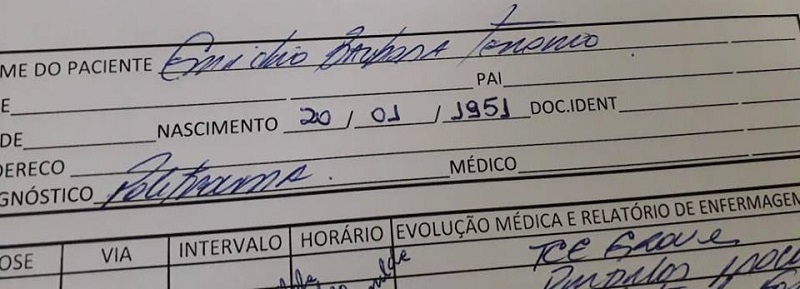 ME DO PACIENTE Emidio Barbosa Tenorio
E PAI
DE NASCIMENTO 20 / 01 / 1951 DOC.IDENT
DERECO
GNÓSTICO Politrauma. MÉDICO
OSE VIA INTERVALO HORÁRIO EVOLUÇÃO MÉDICA E RELATÓRIO DE ENFERMAGEM
TCE Grave